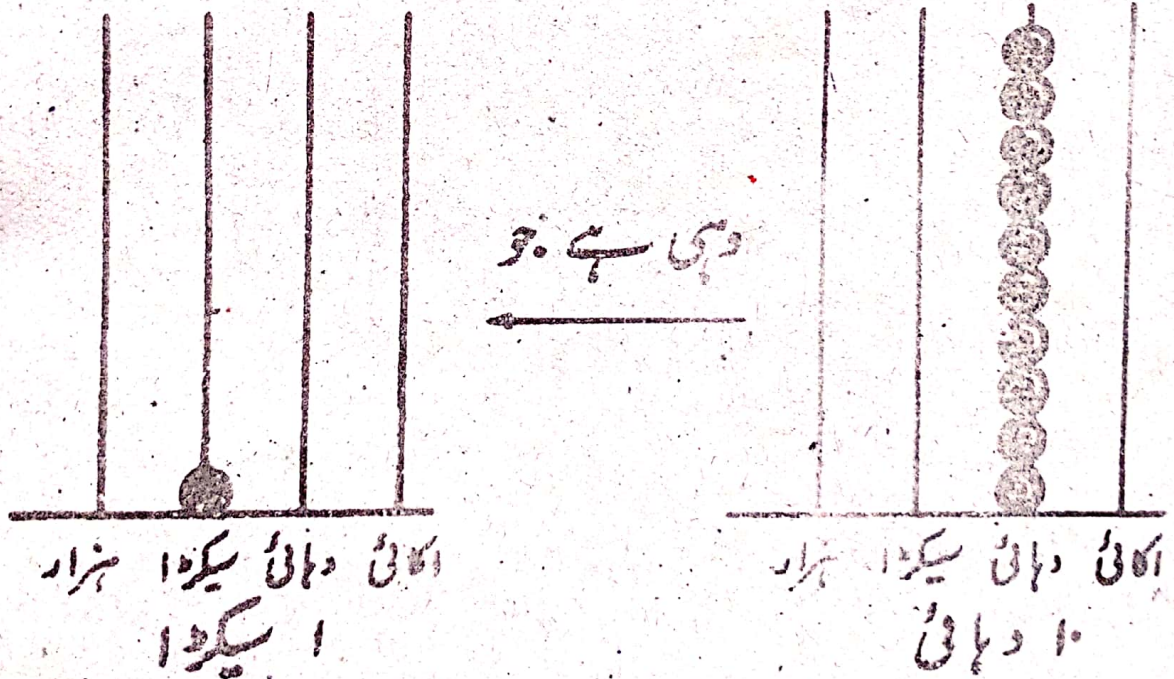 وہی ہے جو
اکائی دہائی سیکڑا ہزار
۱۰ دہائی
اکائی دہائی سیکڑا ہزار
۱ سیکڑا